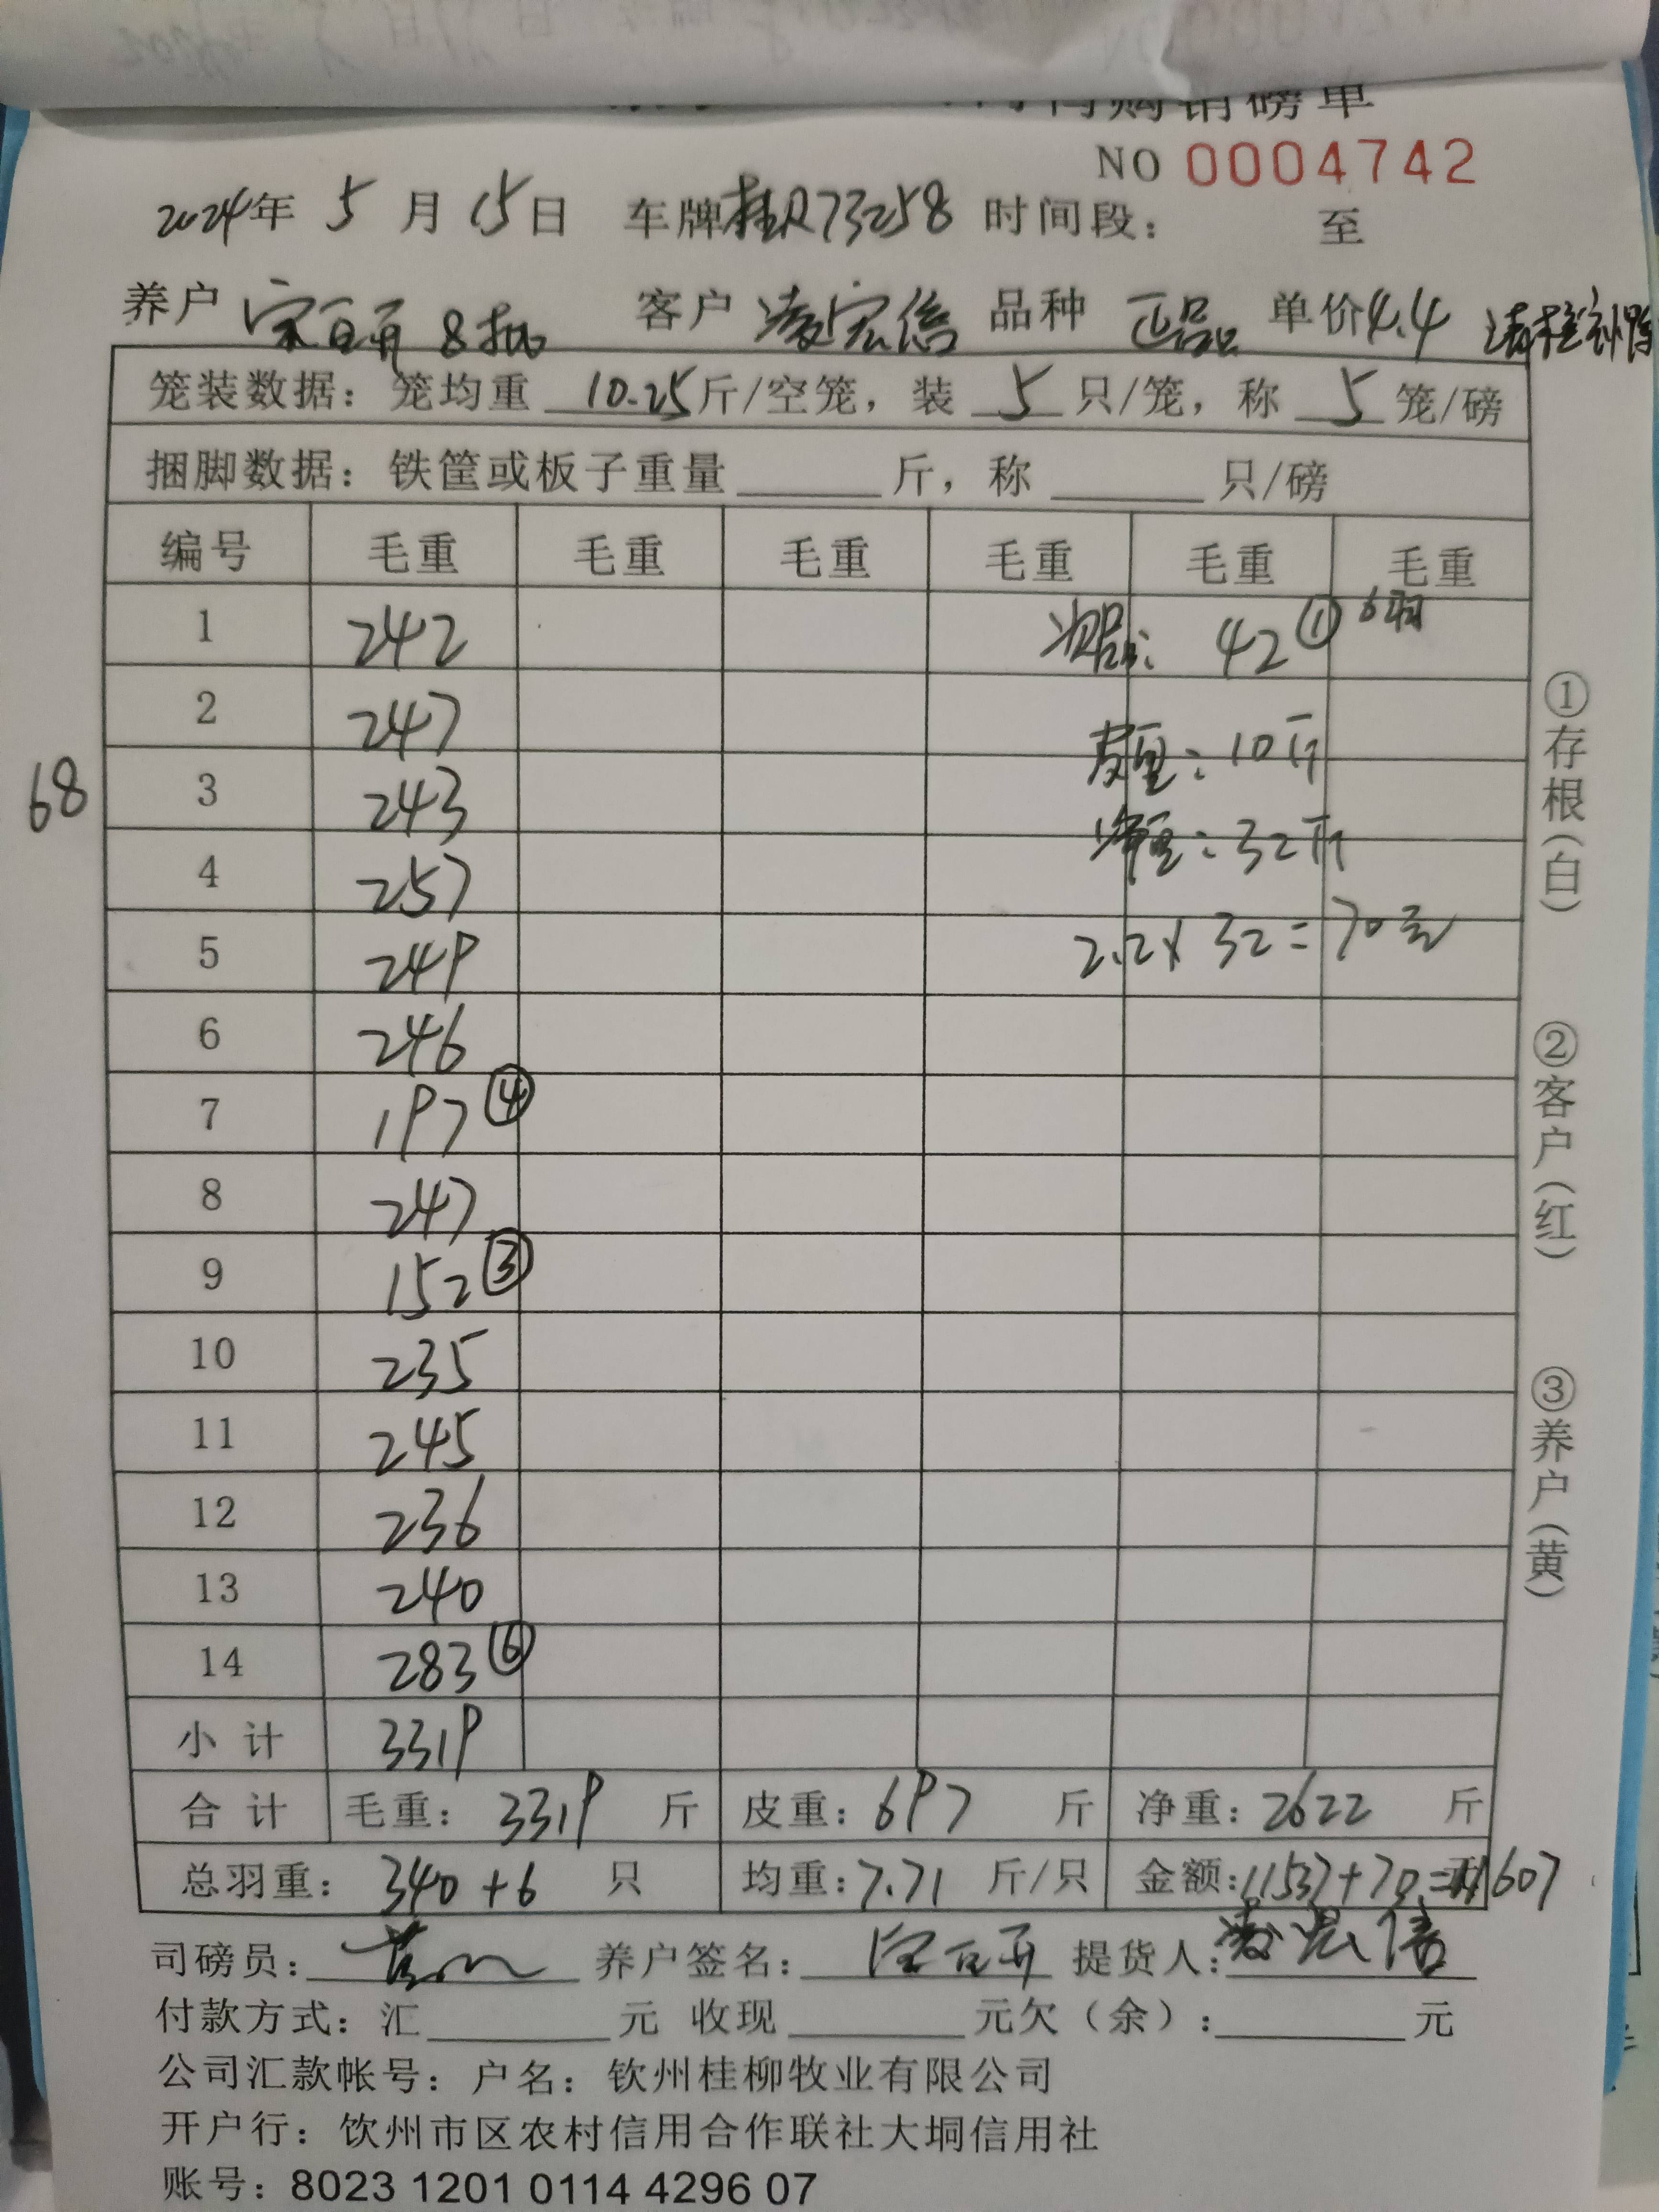 购销磅单
NO 0004742
2024年 5 月 15日 车牌桂R73258 时间段: 至
养户 宋百弄 8批 客户 凌宏信 品种 正品 单价4.4
笼装数据: 笼均重 10.25斤/空笼, 装 5 只/笼, 称 5 笼/磅
捆脚数据: 铁筐或板子重量 斤, 称 只/磅
编号 毛重 毛重 毛重 毛重 毛重 毛重
1 242 次品: 42① 6羽
2 247 皮重: 10斤
68
3 243 净重: 32斤
4 257
5 249 2.2×32=70元
6 246
7 197④
8 247
9 152③
10 235
11 245
12 236
13 240
14 283⑥
小计 3319
合计 毛重: 3319 斤 皮重: 697 斤 净重: 2622 斤
总羽重: 340+6 只 均重: 7.71 斤/只 金额: 11537+70=11607
司磅员: 养户签名: 宋百弄 提货人: 凌宏信
付款方式: 汇 元 收现 元欠(余): 元
公司汇款帐号: 户名: 钦州桂柳牧业有限公司
开户行: 钦州市区农村信用合作联社大垌信用社
账号: 8023 1201 0114 4296 07
①存根(白)
②客户(红)
③养户(黄)